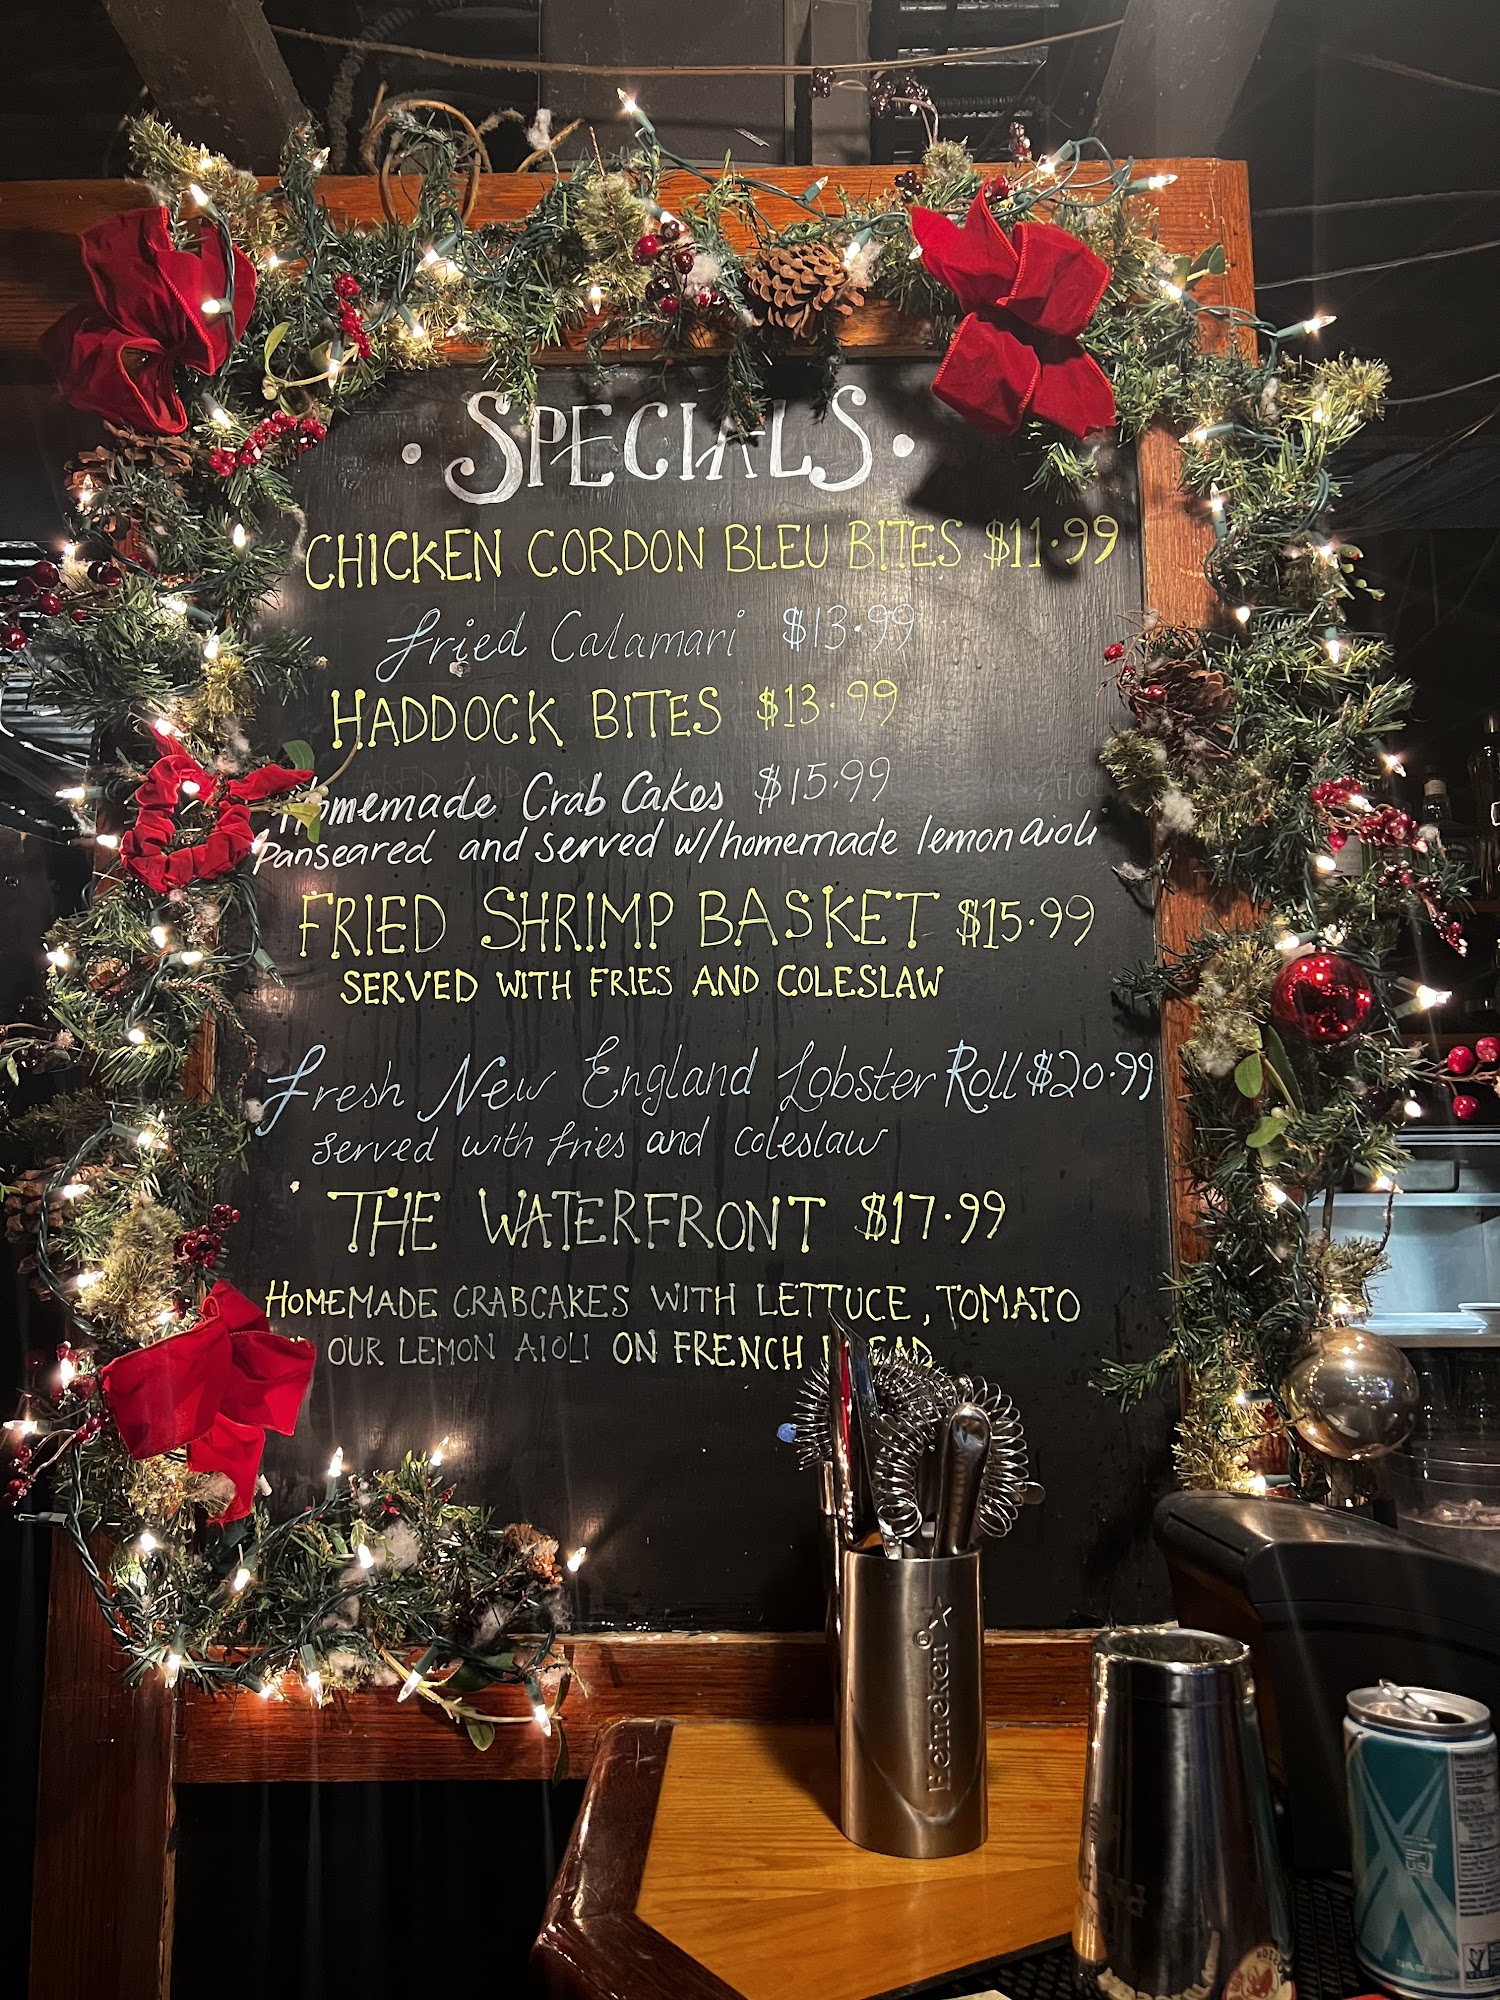 • SPECIALS •
CHICKEN CORDON BLEU BITES $11.99
Fried Calamari $13.99
HADDOCK BITES $13.99
Homemade Crab Cakes $15.99
Panseared and served w/homemade lemon aioli
FRIED SHRIMP BASKET $15.99
SERVED WITH FRIES AND COLESLAW
Fresh New England Lobster Roll $20.99
served with fries and coleslaw
THE WATERFRONT $17.99
HOMEMADE CRABCAKES WITH LETTUCE, TOMATO
OUR LEMON AIOLI ON FRENCH
Heineken